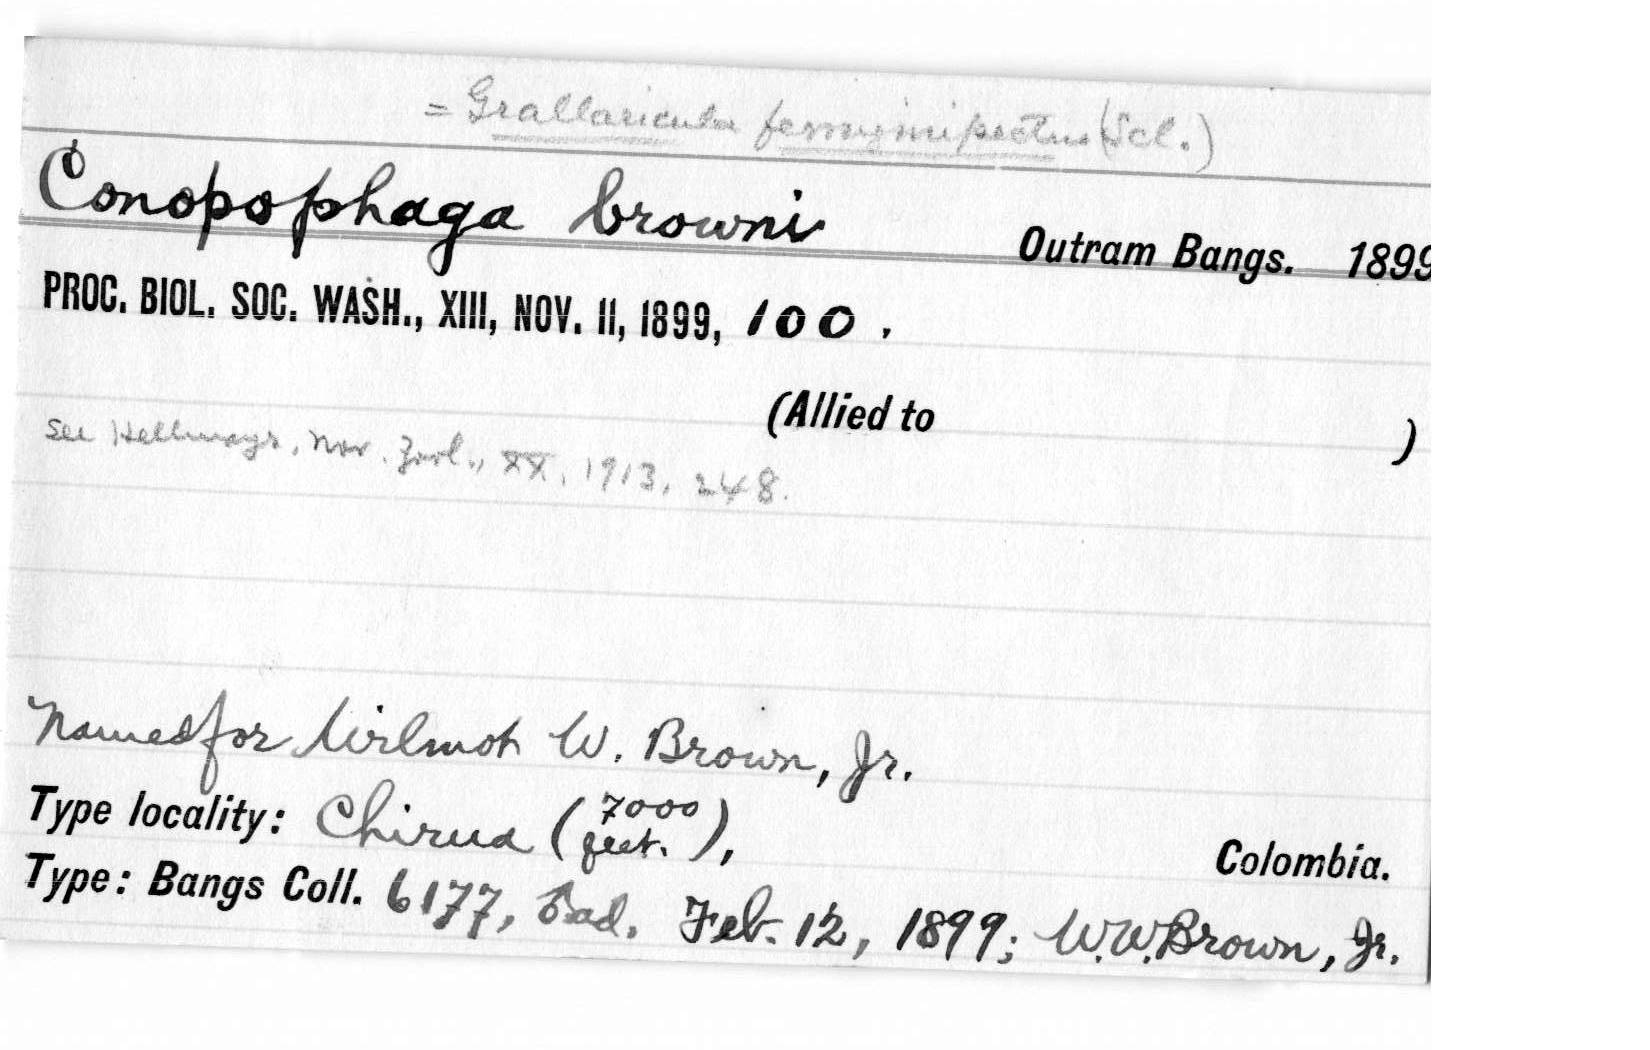 = Grallaricula ferrugineipectus (Scl.)
Conopophaga browni Outram Bangs. 1899
PROC. BIOL. SOC. WASH., XIII, NOV. 11, 1899, 100.
(Allied to )
See Hellmayr, Nov. Zool., XX, 1913, 248.
Named for Wilmot W. Brown, Jr.
Type locality: Chirua (7000 feet.), Colombia.
Type: Bangs Coll. 6177, ad. Feb. 12, 1899; W.W. Brown, Jr.